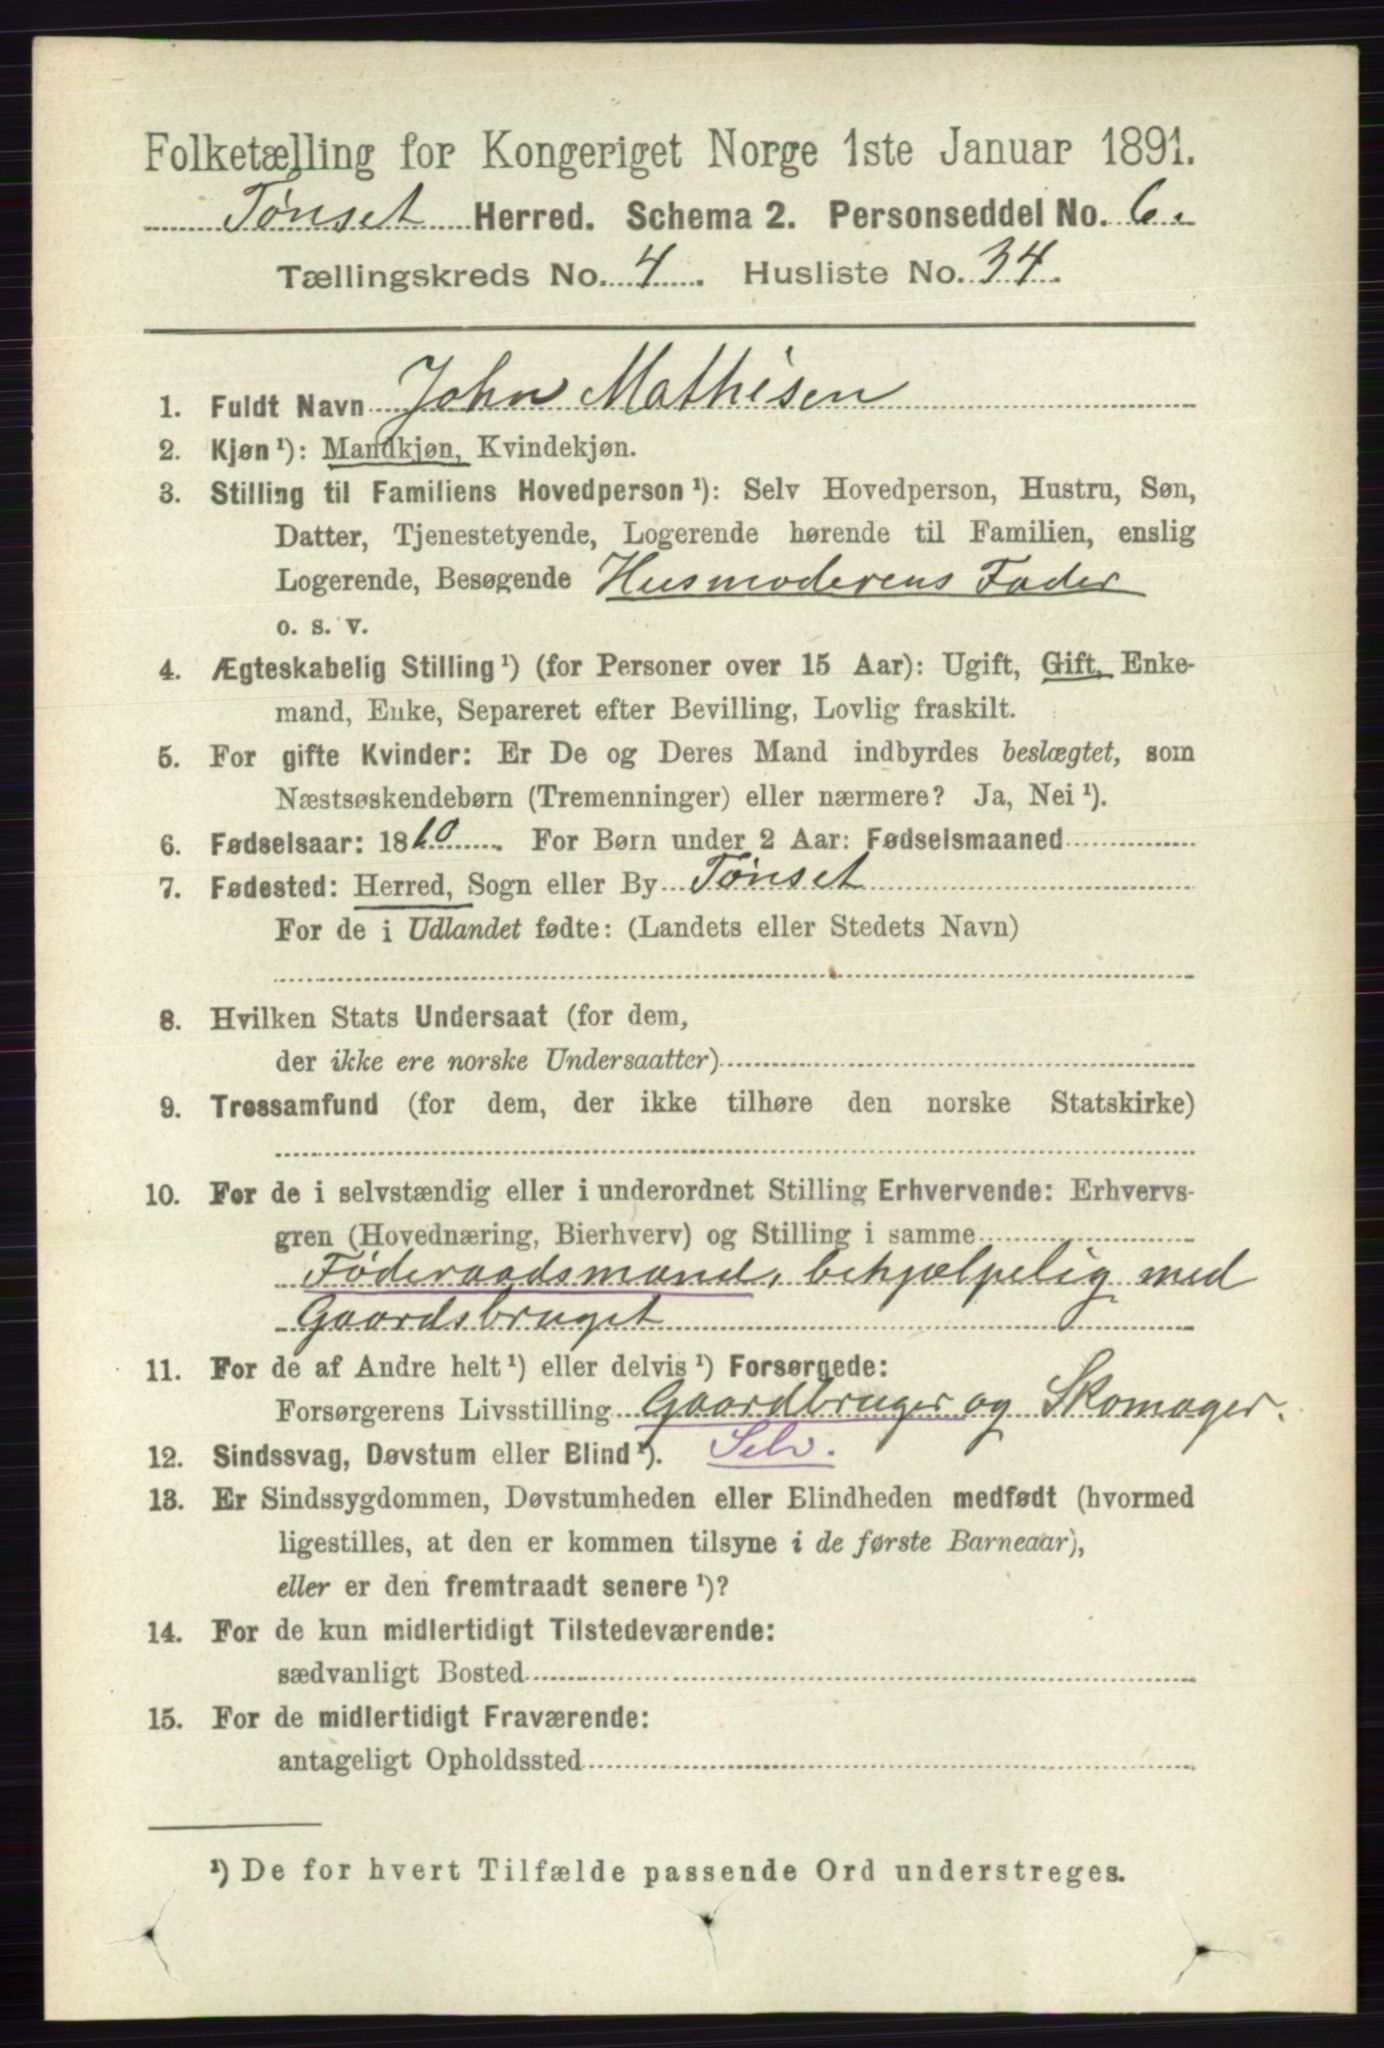 Folketælling for Kongeriget Norge 1ste Januar 1891.
Tønset Herred. Schema 2. Personseddel No. 6.
Tællingskreds No. 4. Husliste No. 34.
1. Fuldt Navn John Mathisen
2. Kjøn¹): Mandkjøn, Kvindekjøn.
3. Stilling til Familiens Hovedperson¹): Selv Hovedperson, Hustru, Søn,
Datter, Tjenestetyende, Logerende hørende til Familien, enslig
Logerende, Besøgende Husmoderens Fader
o. s. v.
4. Ægteskabelig Stilling¹) (for Personer over 15 Aar): Ugift, Gift, Enke-
mand, Enke, Separeret efter Bevilling, Lovlig fraskilt.
5. For gifte Kvinder: Er De og Deres Mand indbyrdes beslægtet, som
Næstsøskendebørn (Tremenninger) eller nærmere? Ja, Nei¹).
6. Fødselsaar: 18 For Børn under 2 Aar: Fødselsmaaned
7. Fødested: Herred, Sogn eller By Tønset
For de i Udlandet fødte: (Landets eller Stedets Navn)
8. Hvilken Stats Undersaat (for dem,
der ikke ere norske Undersaatter)
9. Trossamfund (for dem, der ikke tilhøre den norske Statskirke)
10. For de i selvstændig eller i underordnet Stilling Erhvervende: Erhvervs-
gren (Hovednæring, Bierhverv) og Stilling i samme
Föderaadsmand, behjælpelig med
Gaardsbruget
11. For de af Andre helt¹) eller delvis¹) Forsørgede:
Forsørgerens Livsstilling Gaardbruger og Skomager.
12. Sindssvag, Døvstum eller Blind¹). Selv.
13. Er Sindssygdommen, Døvstumheden eller Blindheden medfødt (hvormed
ligestilles, at den er kommen tilsyne i de første Barneaar),
eller er den fremtraadt senere¹)?
14. For de kun midlertidigt Tilstedeværende:
sædvanligt Bosted
15. For de midlertidigt Fraværende:
antageligt Opholdssted
¹) De for hvert Tilfælde passende Ord understreges.